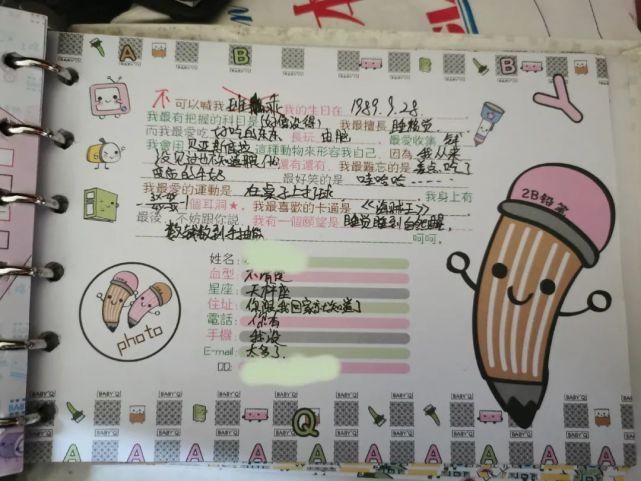 A B B Y
不可以喊我 班 乖 我的生日在 1989.9.28.
我最有把握的科目是(好像没得) 我最擅長 睡觉觉.
而我最愛吃 好吃的东东 長玩 电脑 最愛收集
我會用 贝亚斯底拉 這種動物來形容我自己，因為 我从来
没见过也不知道那 還有還有，我最難忘的是 差点吃了
最好笑的是 哇哈哈......
我最愛的運動是 在桌子上打球 我身上有
個耳洞★，我最喜歡的卡通是《海贼王》
最後，不妨跟你説，我有一個願望是 睡觉睡到自然醒，
数钱数到手抽筋 呵呵。
姓名:
血型: 不清楚
星座: 天秤座
住址: 你跟我回家就知道了
電話: 你有
手機: 我没
E-mail: 太多了.
QQ:
photo
2B铅笔
Q
BABY'Q